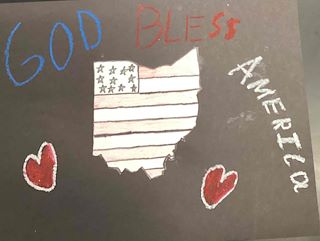 GOD BLESS
AMERICA